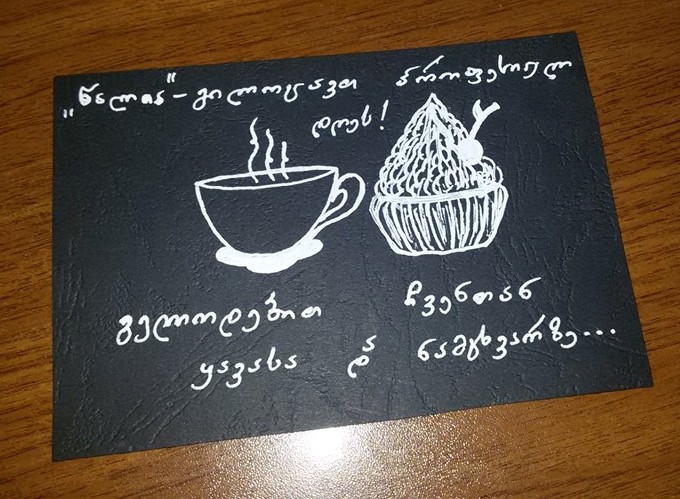 „წალია“ - გილოცავთ პროფესიულ
დღეს!
გელოდებით ჩვენთან
ყავასა და ნამცხვარზე...